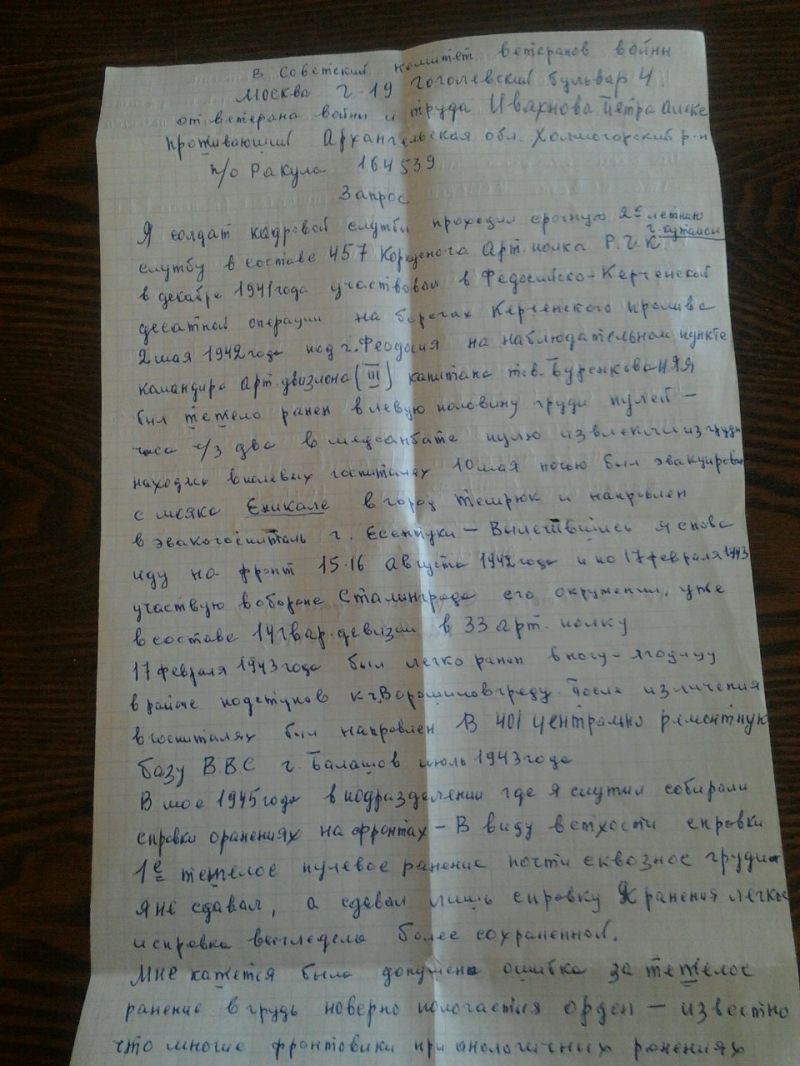 В Советский комитет ветеранов войны
Москва Г-19 Гоголевский бульвар 4.
от ветерана войны и труда Ивахнова Петра Алексе
проживающий Архангельская обл. Холмогорский р-н
п/о Ракула 164539
Запрос
Я солдат кадровой службы проходил срочную 2х летнию
г. Кутаиси
службу в составе 457 Корпусного Арт. полка Р.Г.К.
в декабре 1941 года участвовал в Федосийско-Керченской
десатной операции на берегах Керченского пролива
2 мая 1942 года под г. Феодосия на наблюдательном пункте
командира Арт. двизиона (III) капитана тов. Буренкова
был тежело ранен в левую половину груди пулей —
часа ч/з два в медсанбате пулю извлекли из груди
находяс в полевых госпиталях 10 мая ночью был эвакуирован
с мояка Еникале в город Темрюк и направлен
в эвакогоспиталь г. Есентуки — Вылечившись я снова
иду на фронт 15-16 Августа 1942 года и по 17 февраля 1943
участвую в обороне Сталинграда его окружении, уже
в составе 14 гвар. девизии в 33 арт. полку
17 февраля 1943 года был легко ранен в ногу — ягодицу
в районе подступов к г. Ворошиловграду. После изличения
в госпиталях был направлен В 401 центрально ремонтную
базу В.В.С г. Балашов июль 1943 года
В мае 1945 года в подразделении где я служил собирали
справки оранениях на фронтах — В виду ветхости справки
1е тежелое пулевое ранение почти сквозное груди
я не сдавал, а сдавал лишь справку ранения легкое
и справка выгледела более сохраненной.
Мне кажется была допущена ошибка за тежелое
ранение в грудь наверно пологается орден — известно
что многие фронтовики при анологичных ранениях